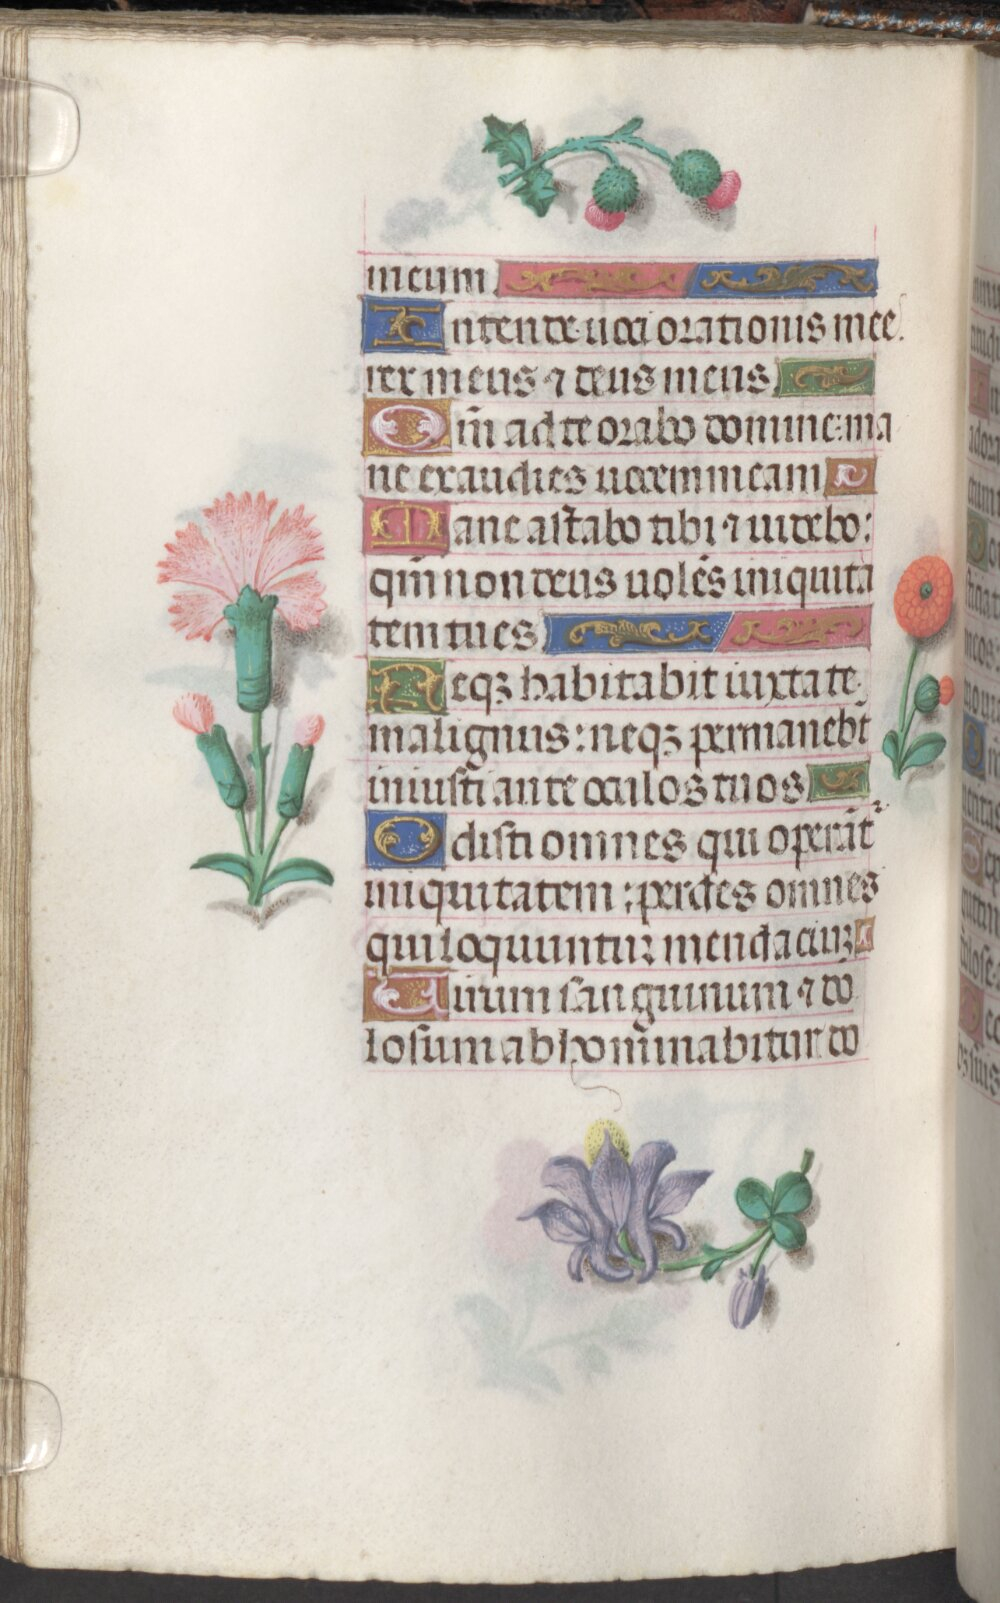 meum
Intende uoci orationis mee.
rex meus ⁊ deus meus
Qm̄ ad te orabo domine: ma
ne exaudies uocem meam
Mane astabo tibi ⁊ uidebo:
qm̄ non deus uolēs iniquita
tem tu es
Neqꝫ habitabit iuxta te
malignus: neqꝫ permanebt̄
iniusti ante oculos tuos
Odisti omnes qui operāt̄
iniquitatem: perdes omnes
qui loquuntur mendaciuꝫ
Uirum sanguinum ⁊ do
losum abhom̄inabitur do